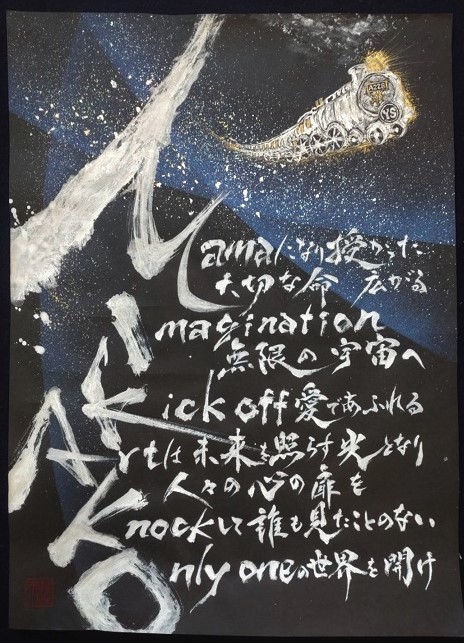 AZZSI
YS
Mamaになり授かった
大切な命 広がる
imagination
無限の宇宙へ
Kick off 愛であふれる
Artは未来を照らす光となり
人々の心の扉を
Knockして誰も見たことのない
Only oneの世界を開け